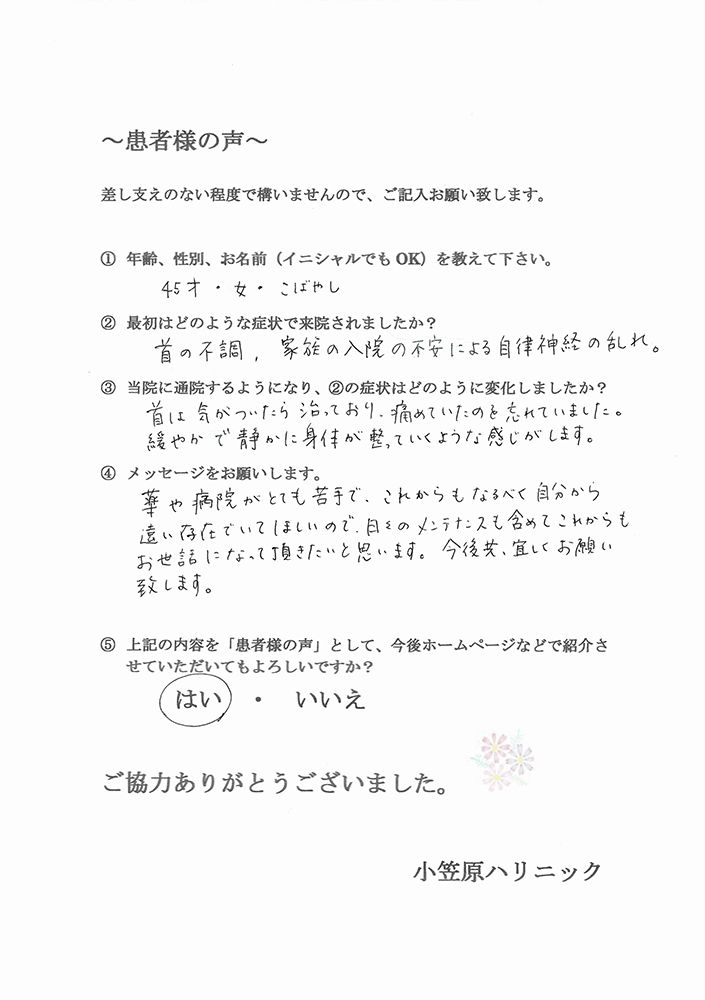 ～患者様の声～
差し支えのない程度で構いませんので、ご記入お願い致します。
① 年齢、性別、お名前（イニシャルでも OK）を教えて下さい。
45才・女・こばやし
② 最初はどのような症状で来院されましたか？
首の不調, 家族の入院の不安による自律神経の乱れ。
③ 当院に通院するようになり、②の症状はどのように変化しましたか？
首は気がついたら治っており、痛めていたのを忘れていました。
緩やかで静かに身体が整っていくような感じがします。
④ メッセージをお願いします。
薬や病院がとても苦手で、これからもなるべく自分から
遠い存在でいてほしいので、日々のメンテナンスも含めてこれからも
お世話になって頂きたいと思います。今後共、宜しくお願い
致します。
⑤ 上記の内容を「患者様の声」として、今後ホームページなどで紹介さ
せていただいてもよろしいですか？
はい ・ いいえ
ご協力ありがとうございました。
小笠原ハリニック